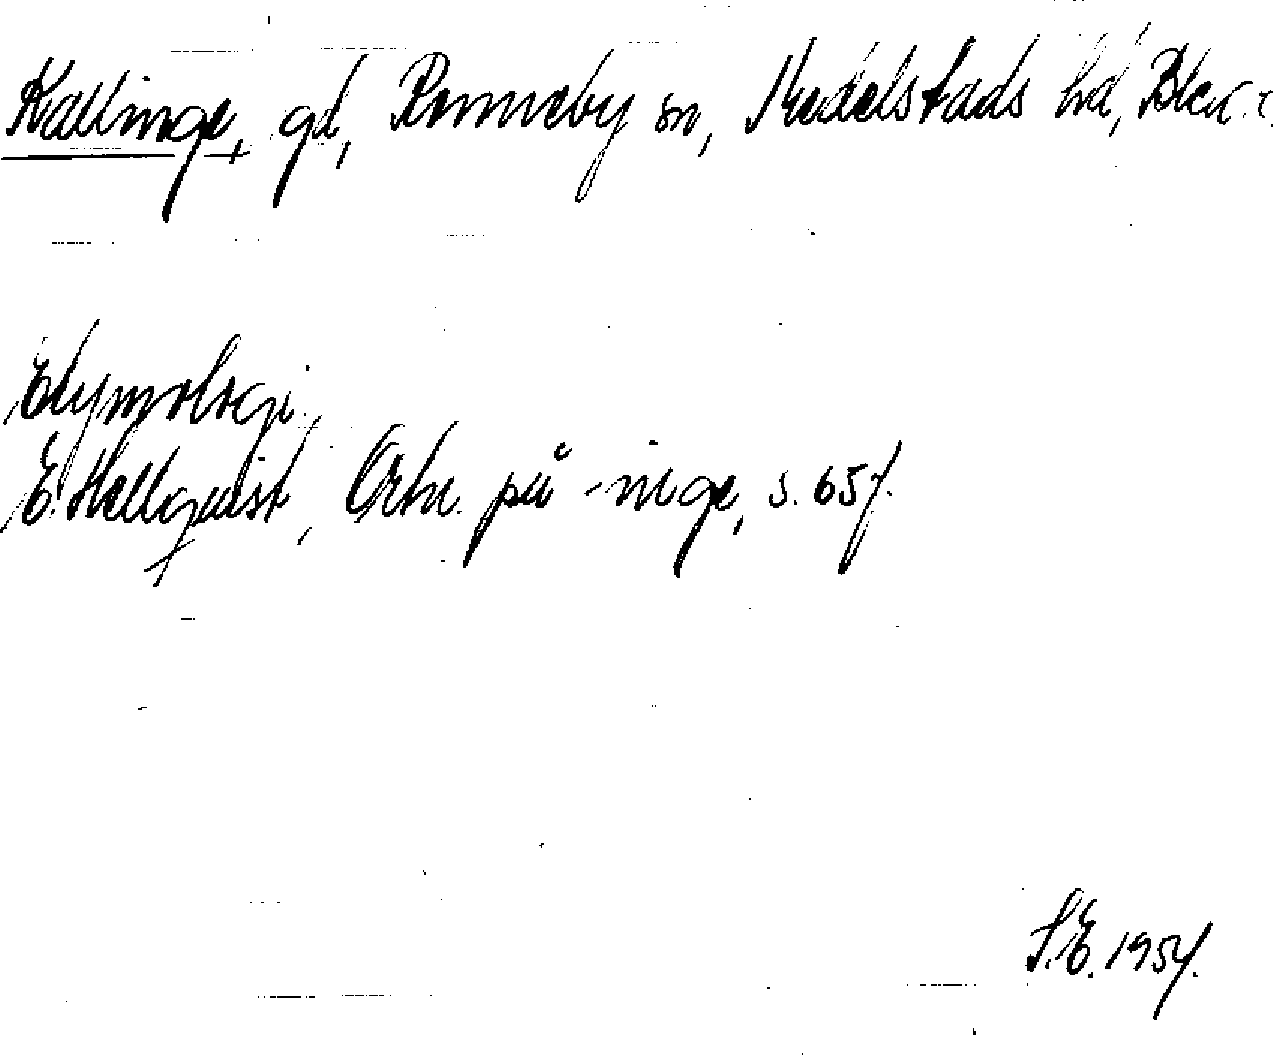 Kallinge, gd, Ronneby sn, Medelstads hd, Blek.
Etymologi.
E. Hellquist, Ortn. på -inge, s. 65f.
S.E. 1954.